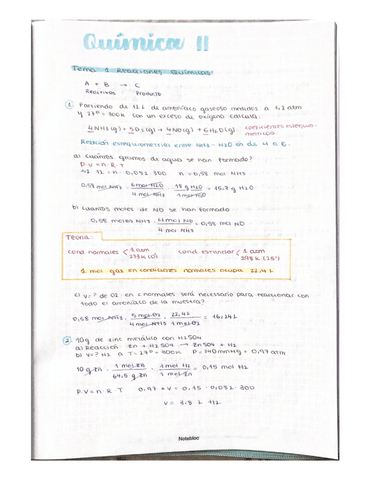 Química II
Tema 1 Reacciones Químicas
A + B → C
Reactivos Producto
① Partiendo de 12 L de amoniaco gaseoso medidos a 1,2 atm
y 27º = 300K con un exceso de oxígeno calcula:
4NH3(g) + 5O2(g) → 4NO(g) + 6H2O(g) coeficientes
Relación estequiométrica entre NH3 - H2O es de 4 a 6.
a) cuántos gramos de agua se han formado?
P·V = n·R·T
12 = n · 0,082 · 300 n = 0,58 mol NH3
0,58 mol NH3 · 6 mol H2O / 4 mol NH3 · 18 g H2O / 1 mol H2O = 15,7 g H2O
b) cuantos moles de NO se han formado
0,58 moles NH3 · 4 mol NO / 4 mol NH3 = 0,58 mol NO
Teoría:
cond normales 1 atm 273K (0) cond estandar 1 atm 298K (25º
1 mol gas en condiciones normales ocupa 22,4 L
c) V = ? de O2 en c normales será necesario para reaccionar con
todo el amoniaco de la muestra?
0,58 mol NH3 · 5 mol O2 / 4 mol NH3 · 22,4L / 1 mol O2 = 16,24 L
② 10g de zinc metálico con H2SO4
a) Reacción Zn + H2SO4 → ZnSO4 + H2
b) V = ? H2 a T = 27º = 300K P = 740mmHg = 0,97 atm
10 g Zn · 1 mol Zn / 64,5 g Zn · 1 mol H2 / 1 mol Zn = 0,15 mol H2
P·V = n·R·T 0,97 · V = 0,15 · 0,082 · 300
V = 3.8 L H2
Notebloc